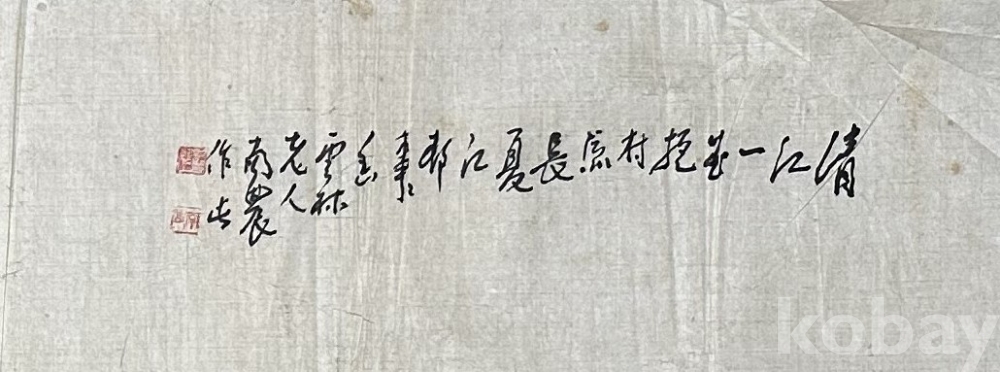 清江一曲抱村流長夏江邨事〻幽
雲林
老人
南農
作此
kobay